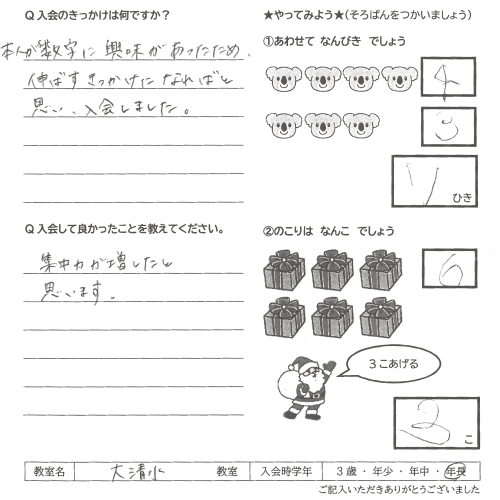 Q 入会のきっかけは何ですか?
本人が数字に興味があったため、
伸ばすきっかけになればと
思い、入会しました。
Q 入会して良かったことを教えてください。
集中力が増したと
思います。
★やってみよう★(そろばんをつかいましょう)
①あわせて なんびき でしょう
4
3
ひき
②のこりは なんこ でしょう
6
3こあげる
3 こ
教室名 大清水 教室 入会時学年 3歳・年少・年中・年長
ご記入いただきありがとうございました